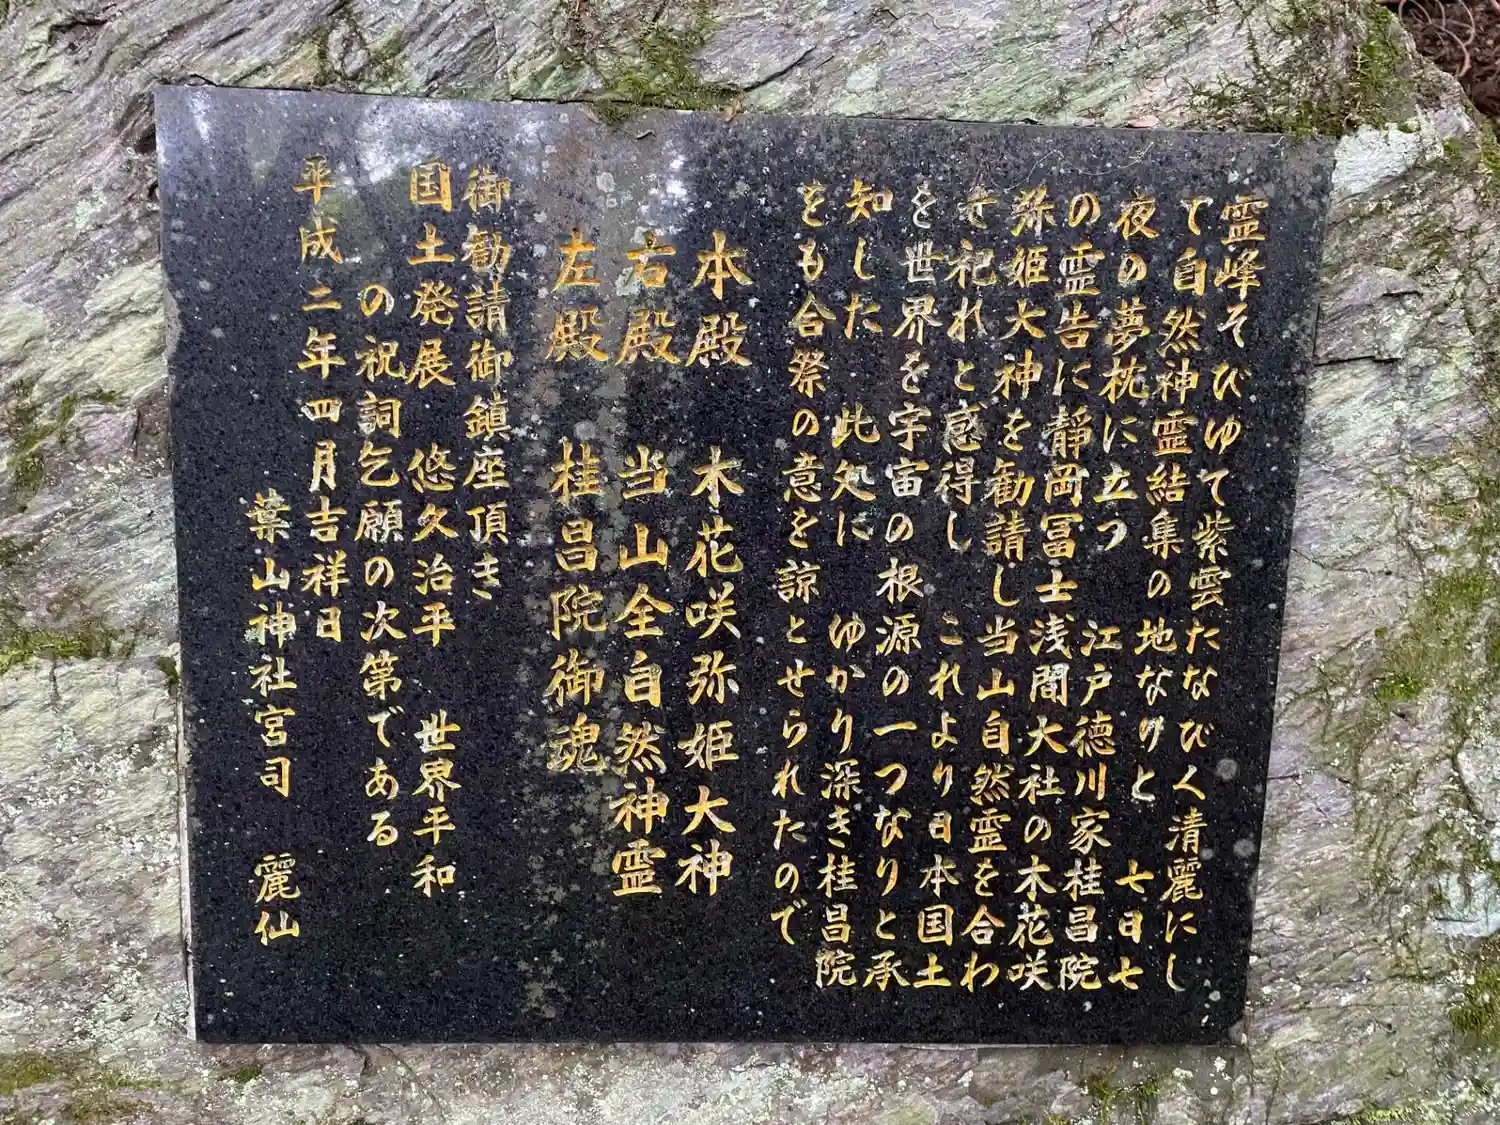 霊峰そびゆて紫雲たなびく清麗にし
て自然神霊結集の地なりと 七日七
夜の夢枕に立つ 江戸徳川家桂昌院
の霊告に靜岡冨士浅間大社の木花咲
弥姫大神を勧請し当山自然霊を合わ
せ祀れと感得し これより日本国土
を世界を宇宙の根源の一つなりと承
知した 此処に ゆかり深き桂昌院
をも合祭の意を諒とせられたので
本殿 木花咲弥姫大神
右殿 当山全自然神霊
左殿 桂昌院御魂
御勧請御鎮座頂き
国土発展 悠久治平 世界平和
の祝詞乞願の次第である
平成二年四月吉祥日
葉山神社宮司 麗仙